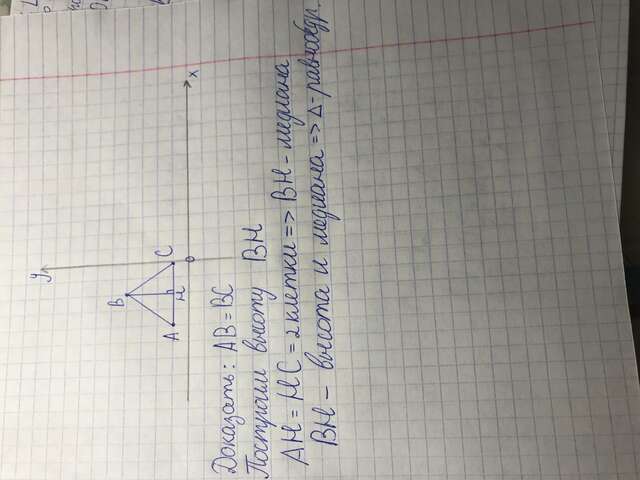 y
B
A
H
C
0
x
Доказать: AB = BC
Построим высоту BH
AH = HC = 2 клетки => BH - медиана
BH - высота и медиана => Δ - равнобедр.